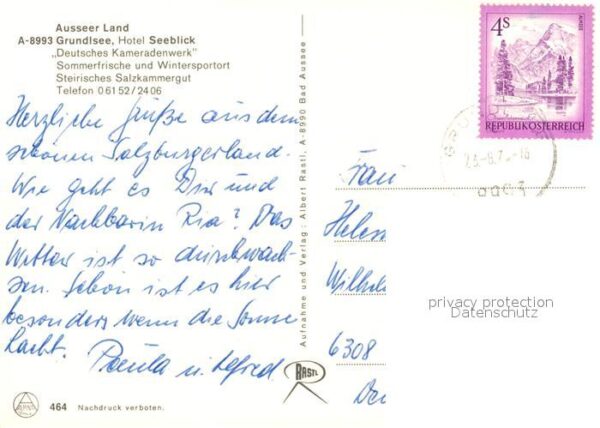 Ausseer Land
A-8993 Grundlsee, Hotel Seeblick
„Deutsches Kameradenwerk"
Sommerfrische und Wintersportort
Steirisches Salzkammergut
Telefon 0 61 52 / 24 06
Herzliche Grüße aus dem
schönen Salzburgerland.
Wie geht es Dir und
der Nachbarin Ria? Das
Wetter ist so durchwach-
sen. Schön ist es hier
besonders wenn die Sonne
lacht. Paula u. Alfred
464 Nachdruck verboten.
Aufnahme und Verlag: Albert Rastl, A-8990 Bad Aussee
RASTL
4S
REPUBLIK ÖSTERREICH
Frau
Helen
Wilhel
privacy protection
Datenschutz
6308